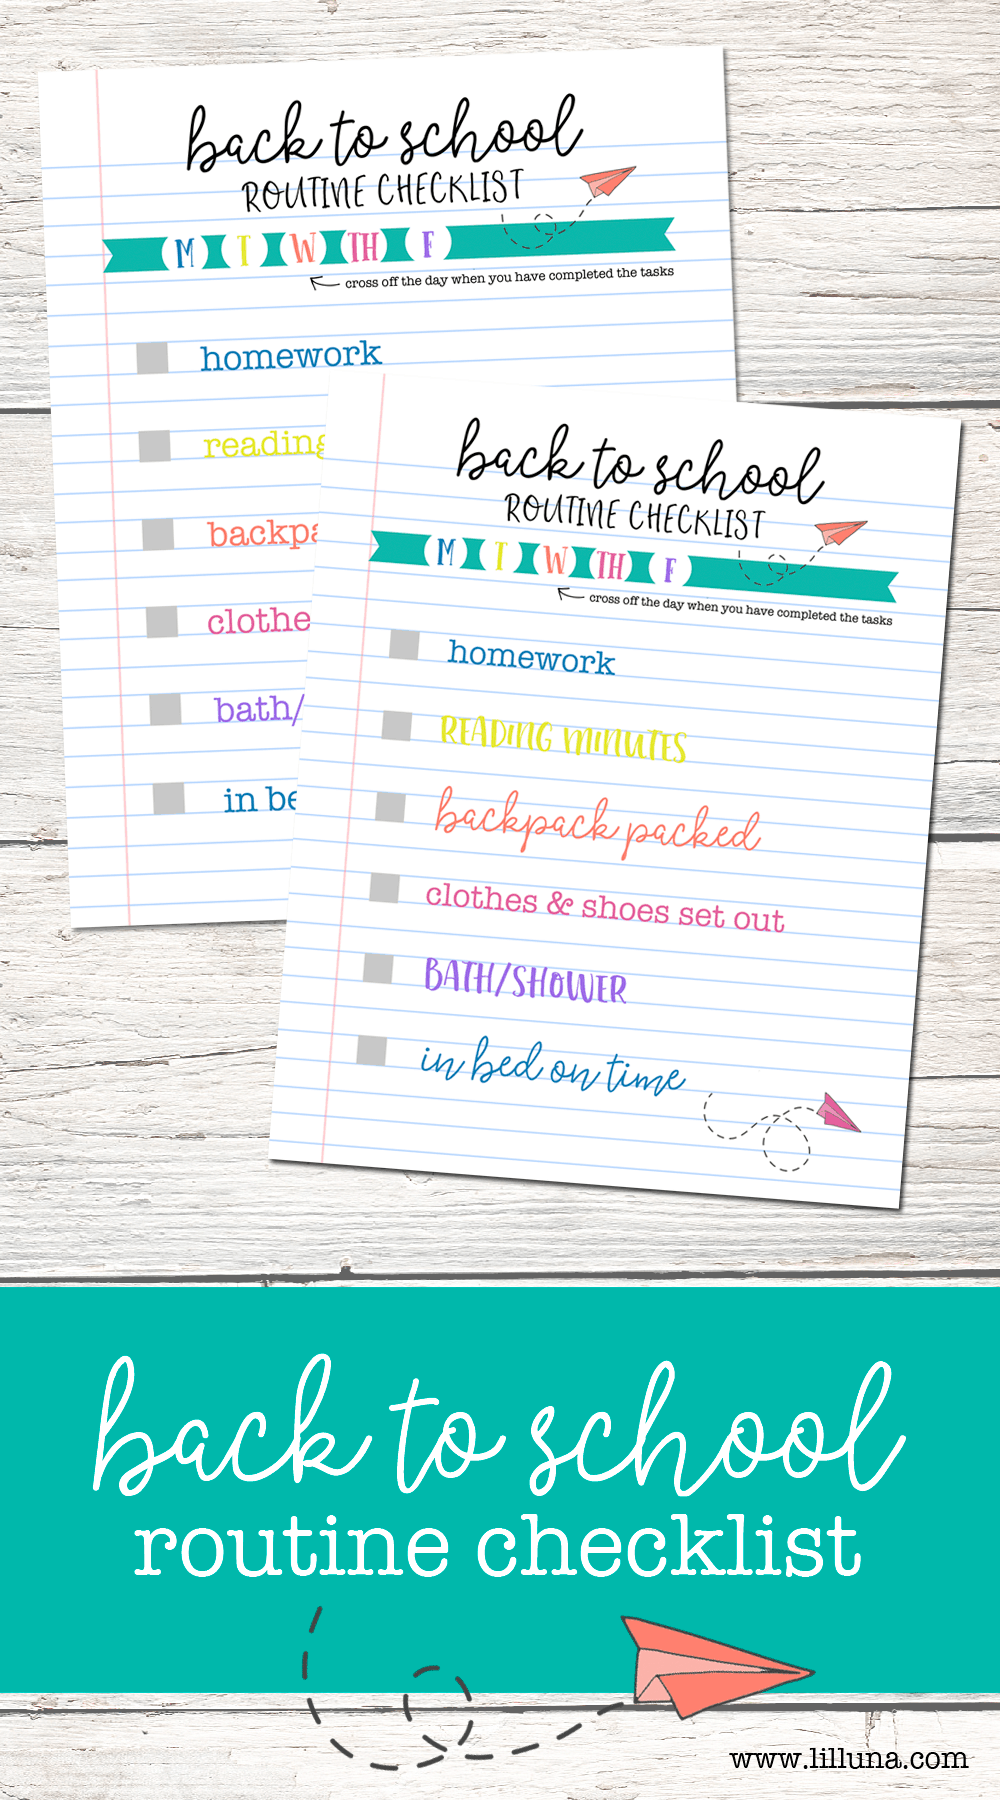 back to school
ROUTINE CHECKLIST
M T W TH F
cross off the day when you have completed the tasks
homework
reading
clothe
bath/
in be
back to school
ROUTINE CHECKLIST
M T W TH F
cross off the day when you have completed the tasks
homework
READING MINUTES
backpack packed
clothes & shoes set out
BATH/SHOWER
in bed on time
back to school
routine checklist
www.lilluna.com